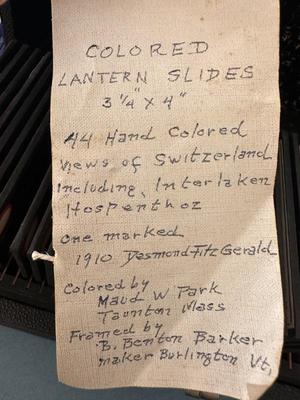 COLORED
LANTERN SLIDES
3 1/4" X 4"
44 Hand Colored
views of Switzerland
Including, Interlaken
Hospenthoz
one marked
1910 Desmond-Fitz Gerald
Colored by
Maud W Park
Taunton Mass
Framed by
B. Benton Barker
maker Burlington Vt.